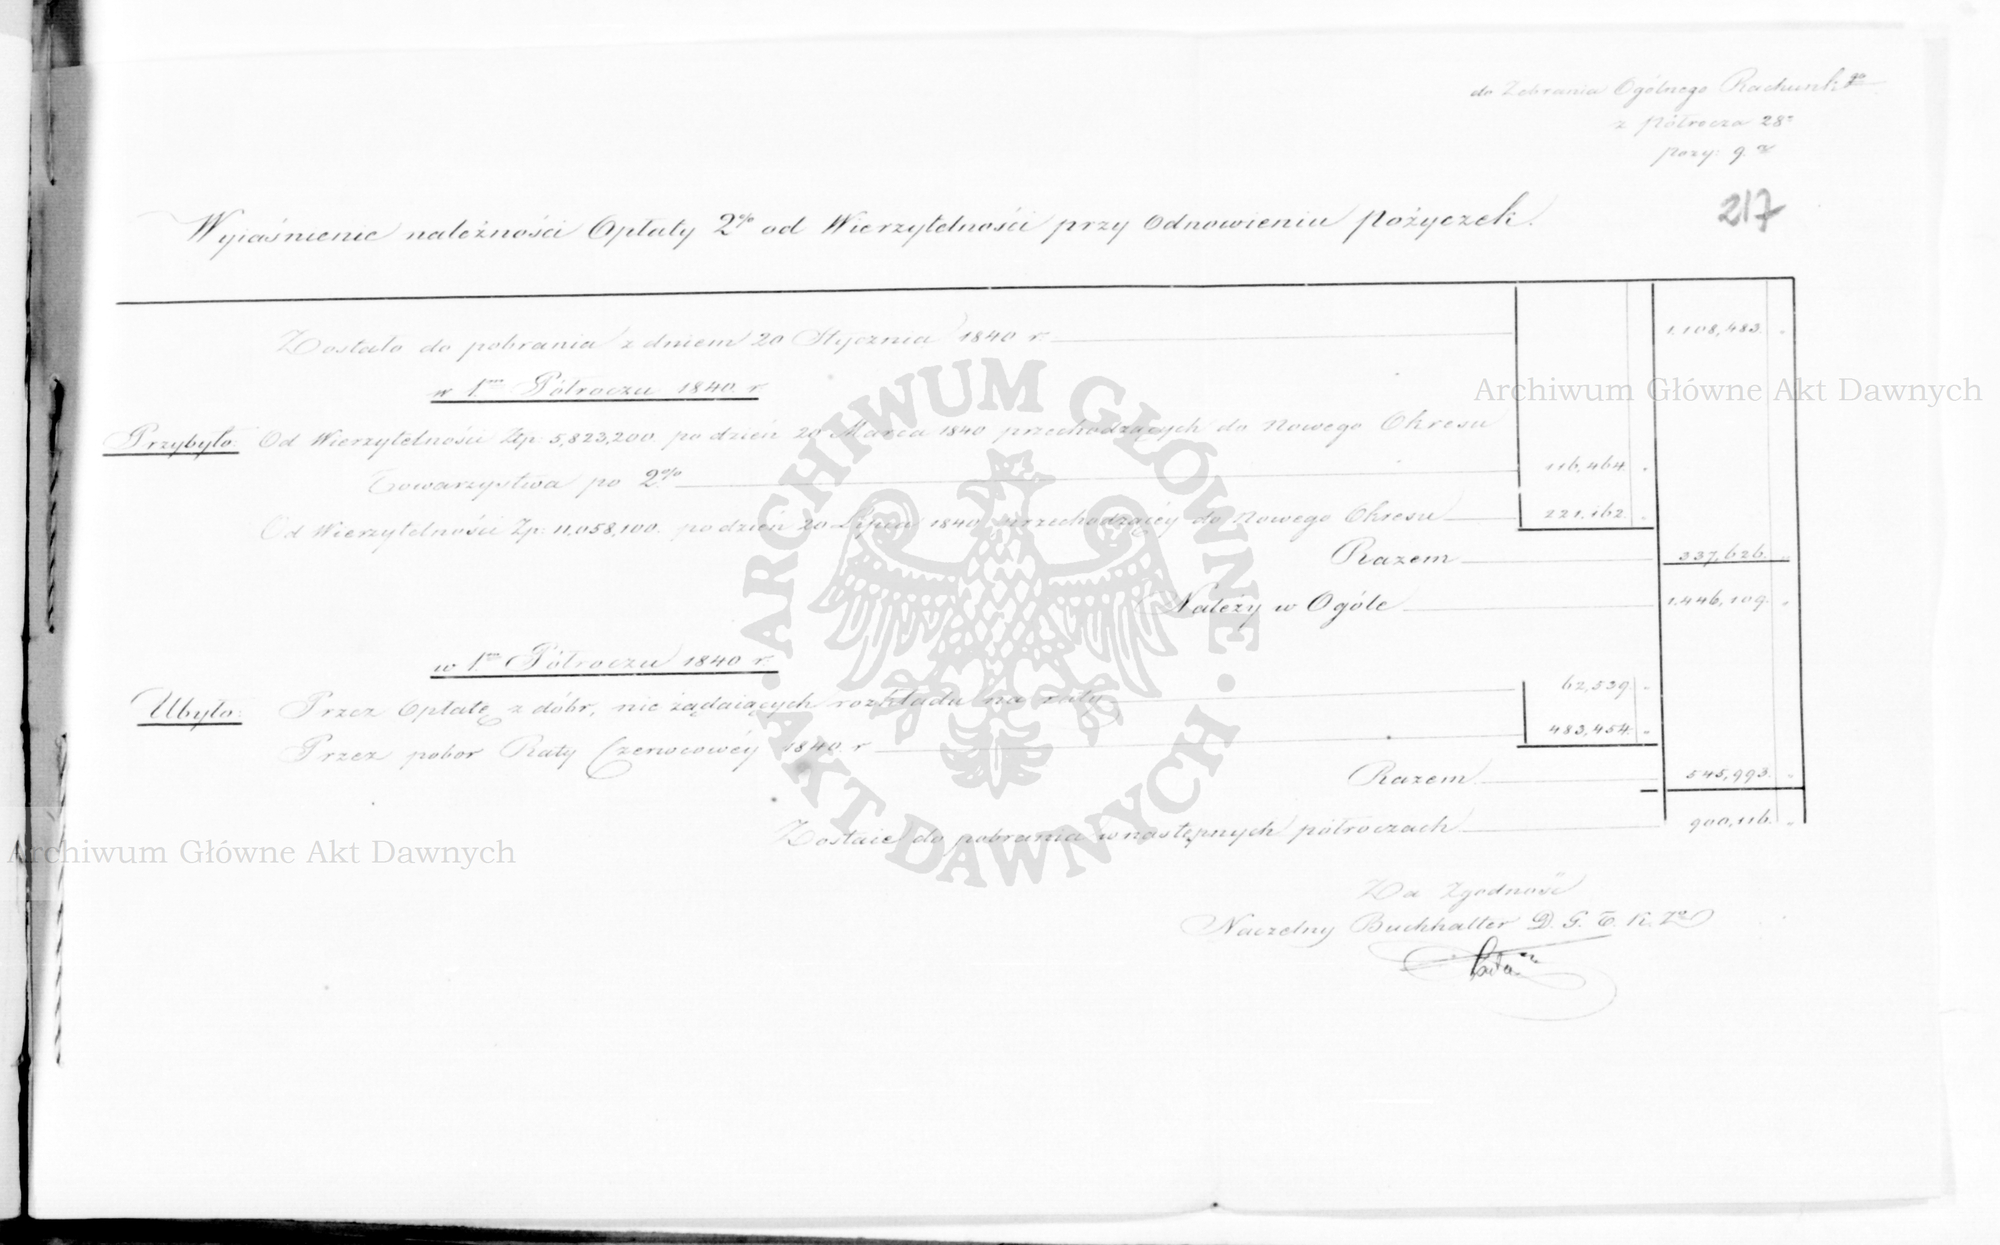 do Zebrania Ogólnego Rachunk go
z Półrocza 28o
pozy: 9.
217
Wyiaśnienie należności Opłaty 2% od Wierzytelności przy Odnowieniu Pożyczek.
Zostało do pobrania z dniem 20 Stycznia 1840 r. 1,108,483. "
w 1m Półroczu 1840 r.
Archiwum Główne Akt Dawnych
Przybyło: Od Wierzytelności Złp: 5,823,200. po dzień 20 Marca 1840 przechodzących do Nowego Okresu
Towarzystwa po 2% 116,464 "
Od Wierzytelności Zp: 11,058,100. po dzień 20 Lipca 1840 przechodzącéy do Nowego Okresu 221,162. "
Razem 337,626. "
Należy w Ogóle 1,446,109. "
w 1m Półroczu 1840 r.
Ubyło: Przez Opłatę z dóbr, nie żądaiących rozkładu na raty 62,539. "
Przez pobór Raty Czerwcowéy 1840 r 483,454. "
Razem 545,993. "
Zostaie do pobrania w następnych półroczach 900,116. "
Archiwum Główne Akt Dawnych
ARCHIWUM GŁÓWNE · AKT DAWNYCH ·
Za Zgodność
Naczelny Buchhalter D. G. T. K. Zo